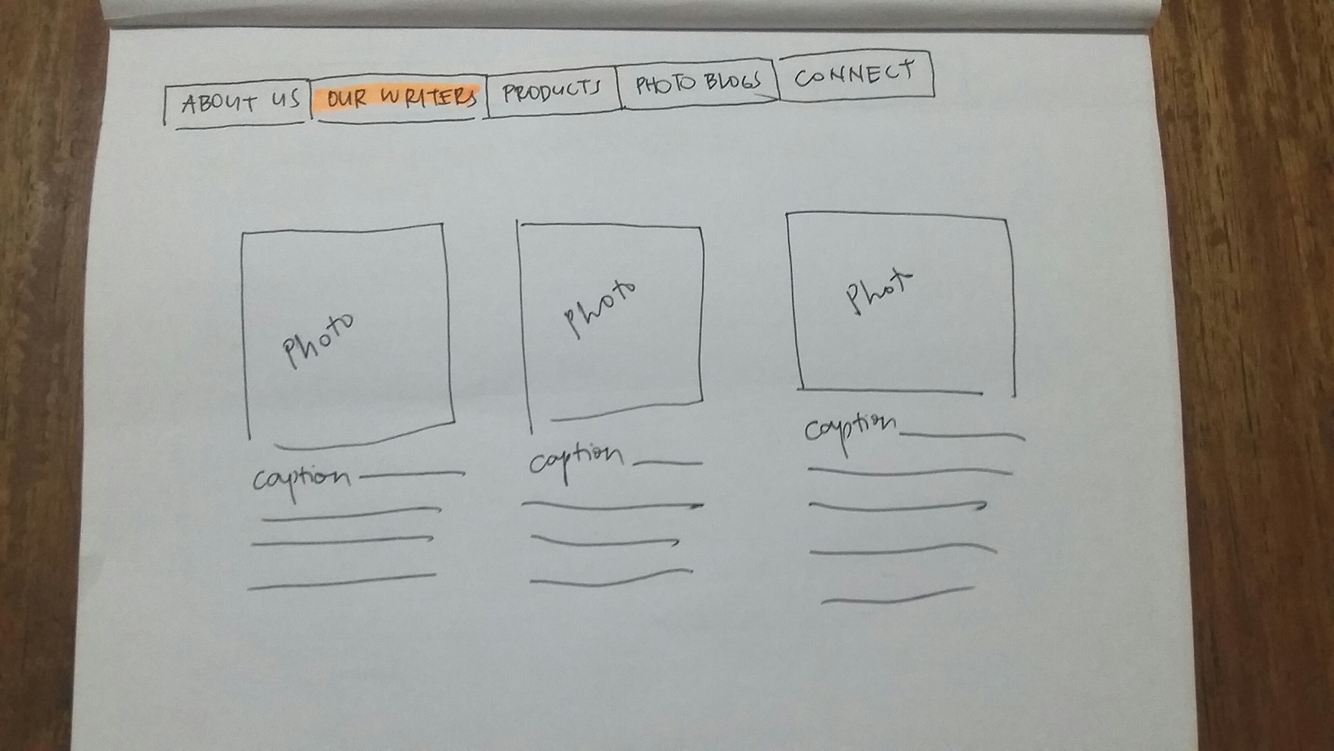 ABOUT US OUR WRITERS PRODUCTS PHOTO BLOGS CONNECT
Photo Photo Phot
caption caption caption